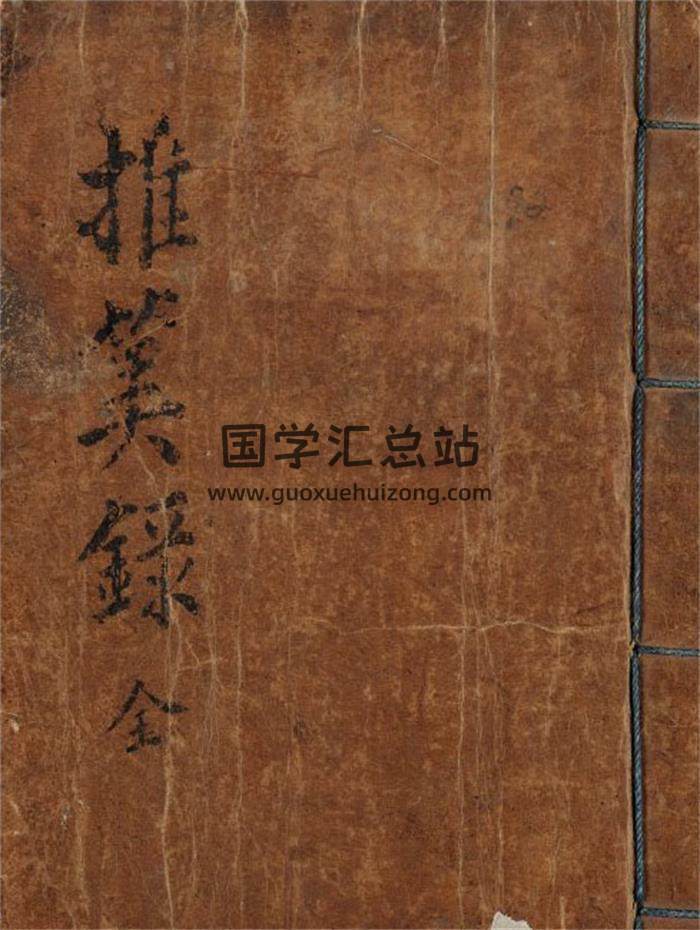 推蓂錄 全
国学汇总站
www.guoxuehuizong.com